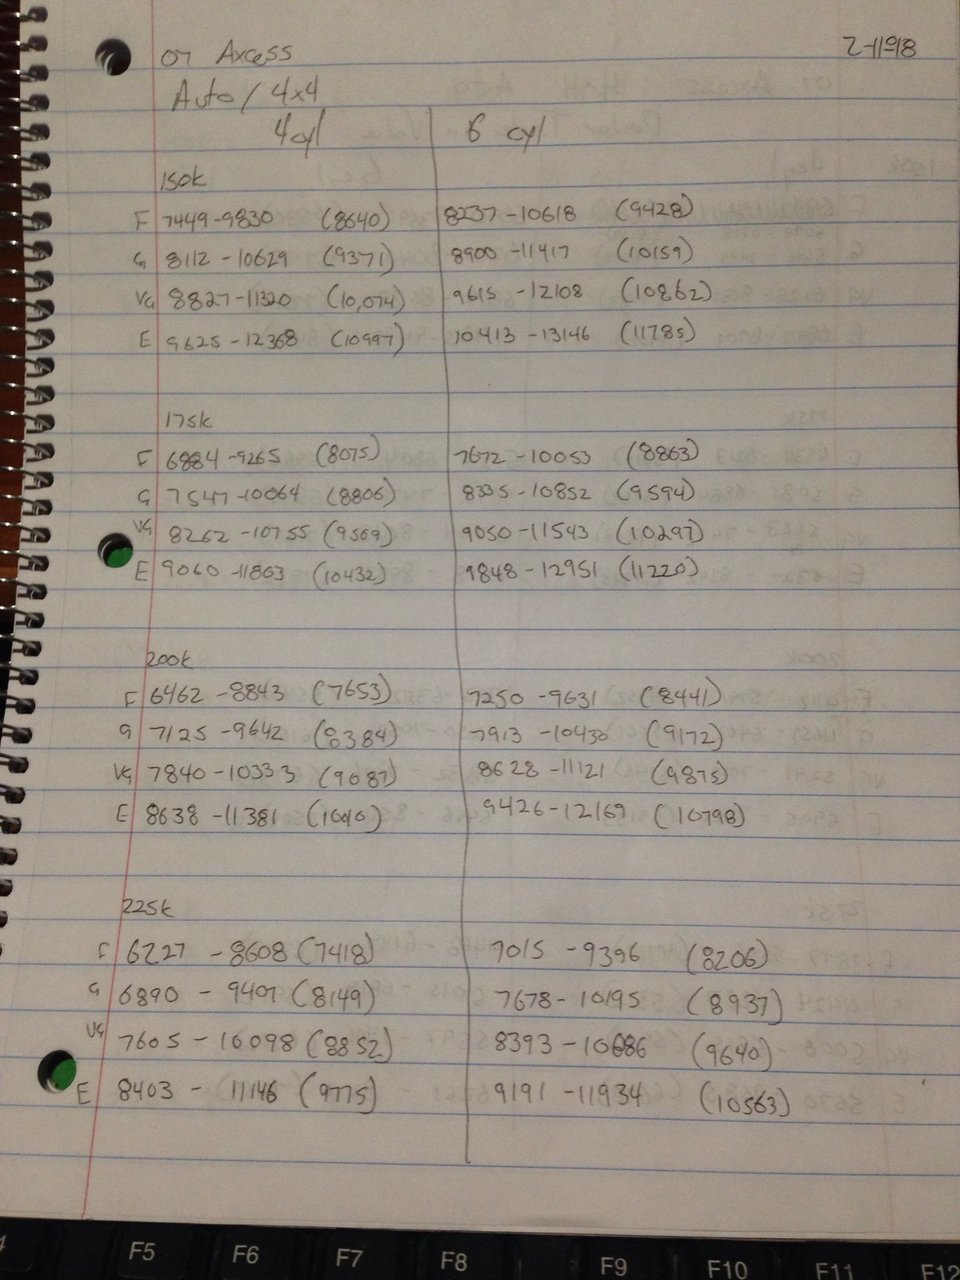 07 Axcess 2-11-18
Auto / 4x4
4cyl 6 cyl
150k
F 7449-9830 (8640) 8237-10618 (9428)
G 8112-10629 (9371) 8900-11417 (10159)
VG 8827-11320 (10,074) 9615-12108 (10862)
E 9625-12368 (10997) 10413-13146 (11785)
175k
F 6884-9265 (8075) 7672-10053 (8863)
G 7547-10064 (8806) 8335-10852 (9594)
VG 8262-10755 (9509) 9050-11543 (10297)
E 9060-11803 (10432) 9848-12951 (11220)
200k
F 6462-8843 (7653) 7250-9631 (8441)
G 7125-9642 (8384) 7913-10430 (9172)
VG 7840-10333 (9087) 8628-11121 (9875)
E 8638-11381 (10010) 9426-12169 (10798)
225k
F 6227-8608 (7418) 7015-9396 (8206)
G 6890-9407 (8149) 7678-10195 (8937)
VG 7605-10098 (8852) 8393-10686 (9640)
E 8403-11146 (9775) 9191-11934 (10563)
F5 F6 F7 F8 F9 F10 F11 F12